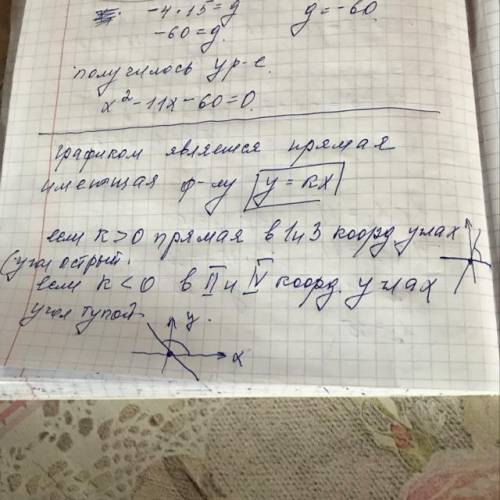 -4·15=g g=-60.
-60=g.
получилось ур-е.
x²-11x-60=0.
графиком является прямая
имеющая ф-лу y=kx
если k>0 прямая в 1и3 коорд. углах
(угол острый.
если k<0 в II и IV коорд. углах
угол тупой
y.
x